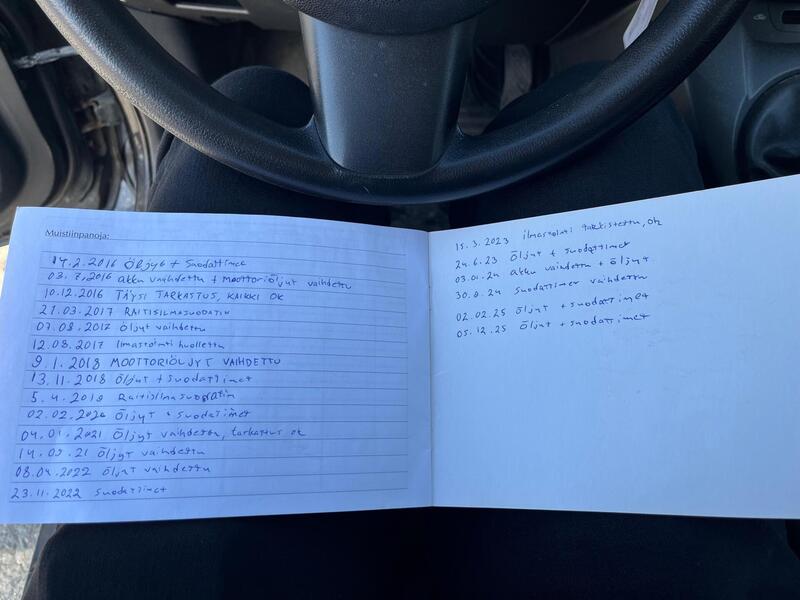 Muistiinpanoja:
14.2.2016 Öljyt + Suodattimet
03.7.2016 akku vaihdettu + moottoriöljyt vaihdettu
10.12.2016 TÄYSI TARKASTUS, KAIKKI OK
21.03.2017 RAITISILMASUODATIN
07.08.2017 Öljyt vaihdettu
12.08.2017 Ilmastointi huollettu
9.1.2018 MOOTTORIÖLJYT VAIHDETTU
13.11.2018 Öljyt + suodattimet
5.4.2019 Raitisilmasuodatin
02.02.2020 Öljyt + suodattimet
04.01.2021 Öljyt vaihdettu, tarkastus ok
14.09.21 öljyt vaihdettu
08.04.2022 öljyt vaihdettu
23.11.2022 suodattimet
15.3.2023 ilmastointi tarkistettu, ok
24.6.23 Öljyt + suodattimet
03.01.24 akku vaihdettu + öljyt
30.9.24 suodattimet vaihdettu
02.02.25 öljyt + suodattimet
05.12.25 öljyt + suodattimet